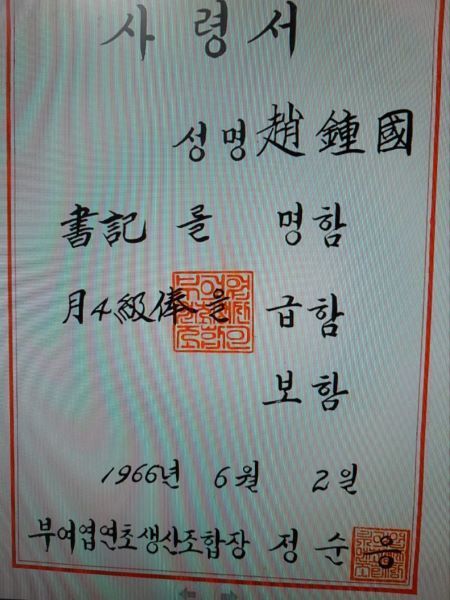 사령서
성명 趙鍾國
書記 를 명함
月4級俸을 급함
보함
1966년 6월 2일
부여엽연초생산조합장 정순용